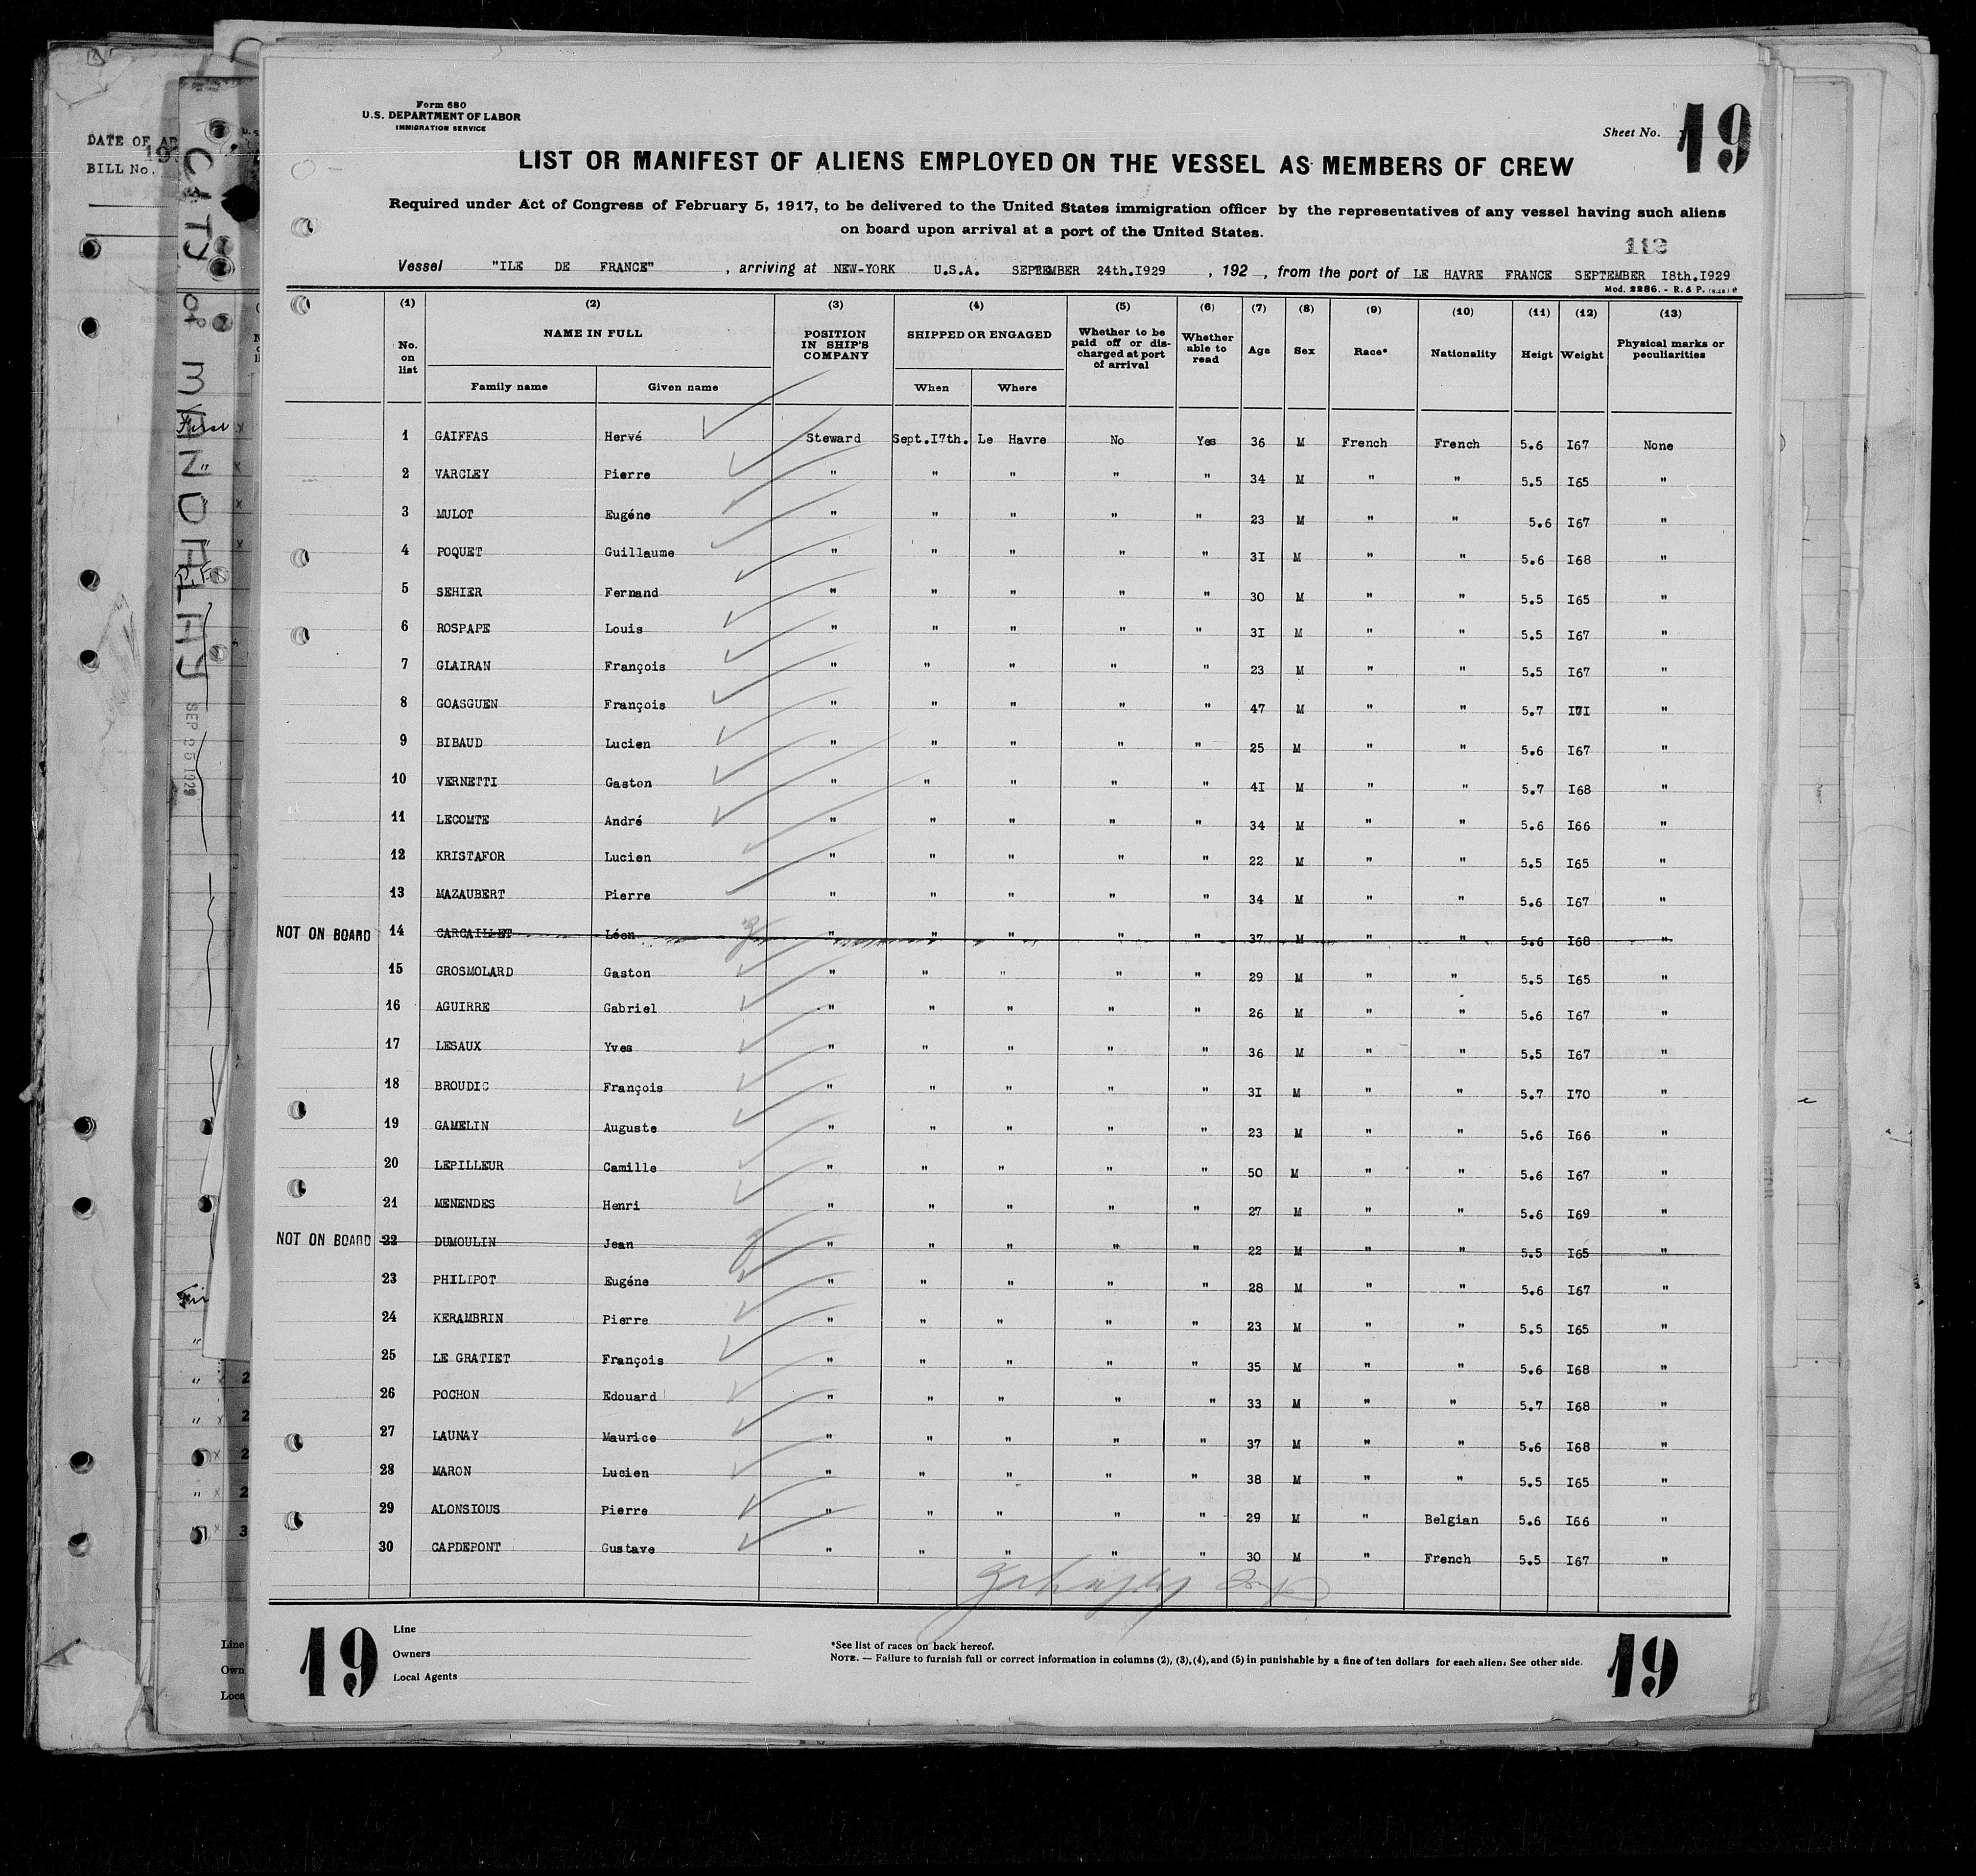 Form 680
U.S. DEPARTMENT OF LABOR
IMMIGRATION SERVICE
Sheet No. 19
LIST OR MANIFEST OF ALIENS EMPLOYED ON THE VESSEL AS MEMBERS OF CREW
Required under Act of Congress of February 5, 1917, to be delivered to the United States immigration officer by the representatives of any vessel having such aliens
on board upon arrival at a port of the United States.
Vessel "ILE DE FRANCE" , arriving at NEW-YORK U.S.A. SEPTEMBER 24th.I929 , 192 , from the port of LE HAVRE FRANCE SEPTEMBER I8th.I929
Mod. 2286. - R. & P.
(1) (2) (3) (4) (5) (6) (7) (8) (9) (10) (11) (12) (13)
No. on list NAME IN FULL POSITION IN SHIP'S COMPANY SHIPPED OR ENGAGED Whether to be paid off or discharged at port of arrival Whether able to read Age Sex Race* Nationality Heigt Weight Physical marks or peculiarities
Family name Given name When Where
1 GAIFFAS Hervé Steward Sept.I7th. Le Havre No Yes 36 M French French 5.6 I67 None
2 VARCLEY Pierre " " " " " 34 M " " 5.5 I65 "
3 MULOT Eugéne " " " " " 23 M " " 5.6 I67 "
4 POQUET Guillaume " " " " " 3I M " " 5.6 I68 "
5 SEHIER Fernand " " " " " 30 M " " 5.5 I65 "
6 ROSPAPE Louis " " " " " 3I M " " 5.5 I67 "
7 GLAIRAN François " " " " " 23 M " " 5.5 I67 "
8 GOASGUEN François " " " " " 47 M " " 5.7 I7I "
9 BIBAUD Lucien " " " " " 25 M " " 5.6 I67 "
10 VERNETTI Gaston " " " " " 4I M " " 5.7 I68 "
11 LECOMTE André " " " " " 34 M " " 5.6 I66 "
12 KRISTAFOR Lucien " " " " " 22 M " " 5.5 I65 "
13 MAZAUBERT Pierre " " " " " 34 M " " 5.6 I67 "
NOT ON BOARD 14 CARCAILLET Léon " " " " " 37 M " " 5.6 I68 "
15 GROSMOLARD Gaston " " " " " 29 M " " 5.5 I65 "
16 AGUIRRE Gabriel " " " " " 26 M " " 5.6 I67 "
17 LESAUX Yves " " " " " 36 M " " 5.5 I67 "
18 BROUDIC François " " " " " 3I M " " 5.7 I70 "
19 GAMELIN Auguste " " " " " 23 M " " 5.6 I66 "
20 LEPILLEUR Camille " " " " " 50 M " " 5.6 I67 "
21 MENENDES Henri " " " " " 27 M " " 5.6 I69 "
NOT ON BOARD 22 DUMOULIN Jean " " " " " 22 M " " 5.5 I65 "
23 PHILIPOT Eugéne " " " " " 28 M " " 5.6 I67 "
24 KERAMBRIN Pierre " " " " " 23 M " " 5.5 I65 "
25 LE GRATIET François " " " " " 35 M " " 5.6 I68 "
26 POCHON Edouard " " " " " 33 M " " 5.7 I68 "
27 LAUNAY Maurice " " " " " 37 M " " 5.6 I68 "
28 MARON Lucien " " " " " 38 M " " 5.5 I65 "
29 ALONSIOUS Pierre " " " " " 29 M " Belgian 5.6 I66 "
30 CAPDEPONT Gustave " " " " " 30 M " French 5.5 I67 "
19
Line
Owners
Local Agents
*See list of races on back hereof.
NOTE. — Failure to furnish full or correct information in columns (2), (3), (4), and (5) in punishable by a fine of ten dollars for each alien. See other side.
19
DATE OF
BILL No.
CITY OF MANDALAY
SEP 25 1929
First
Line